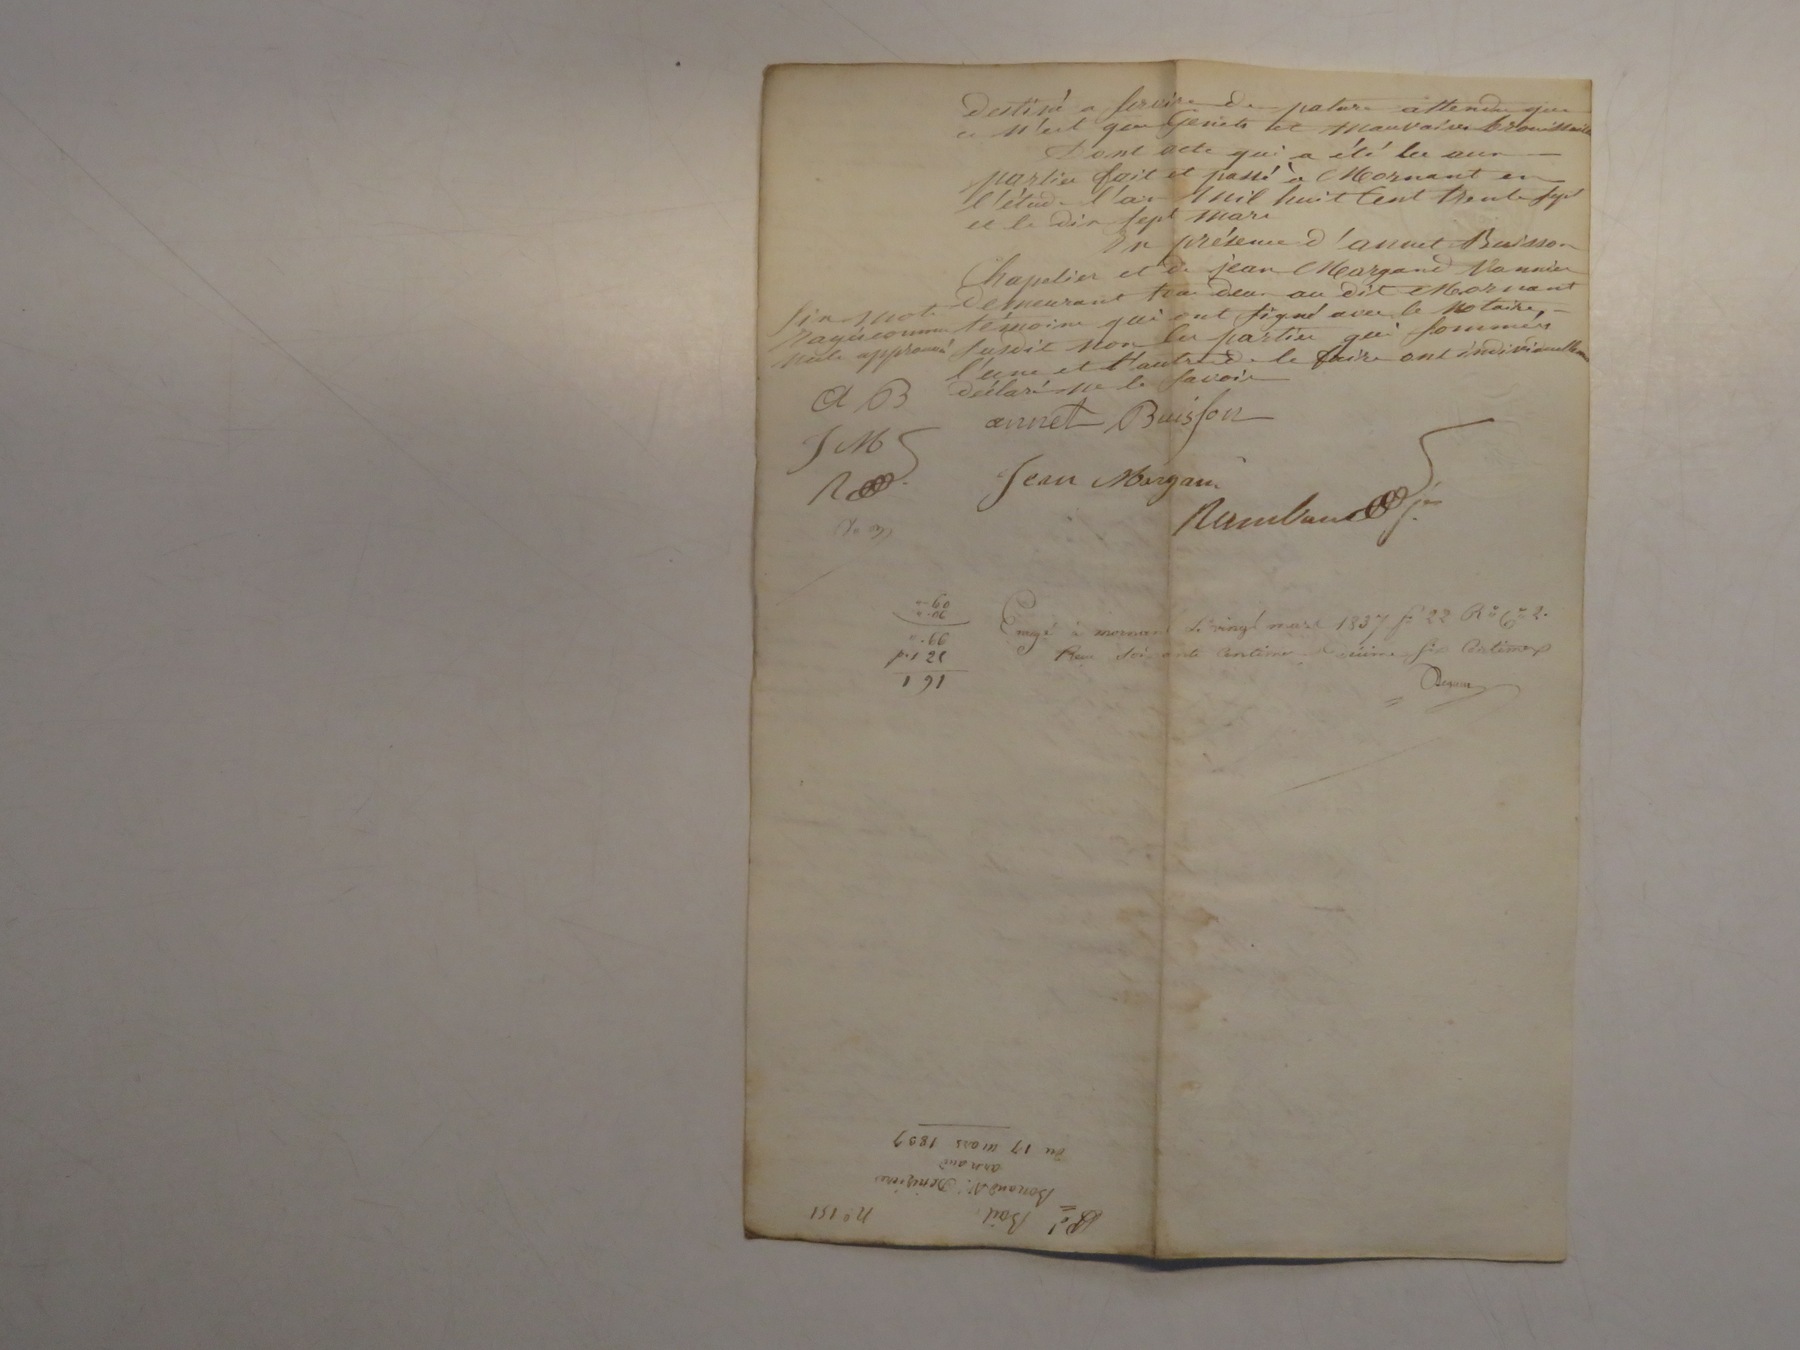 destiné a servire de pature attendu que
ce n'est que Genets et mauvaises brouissailles
Dont acte qui a été lu aux
parties fait et passé à Mornant en
l'étude l'an mil huit Cent trente sept
et le dix sept mars
En présence d'annet Buisson
Chapelier et de jean Morgand Vannier
demeurant tous deux au dit Mornant
témoins qui ont signé avec le Notaire,
susdit non les parties qui sommées
l'une et l'autre de le faire ont individuellement
déclaré ne le savoir
Six mots
Rayés comme
nuls approuvés
A B
J M
R
annet Buisson
Jean Morgand
Rambaud jne
Enregé à mornant le vingt mars 1837 fo 22 Ro Ce 2.
Reçu soixante centimes dixième six centimes
60
06
66
1 25
1 91
nº 151
Bail
Bonand Ve Denizine
arnaud
Du 17 mars 1837